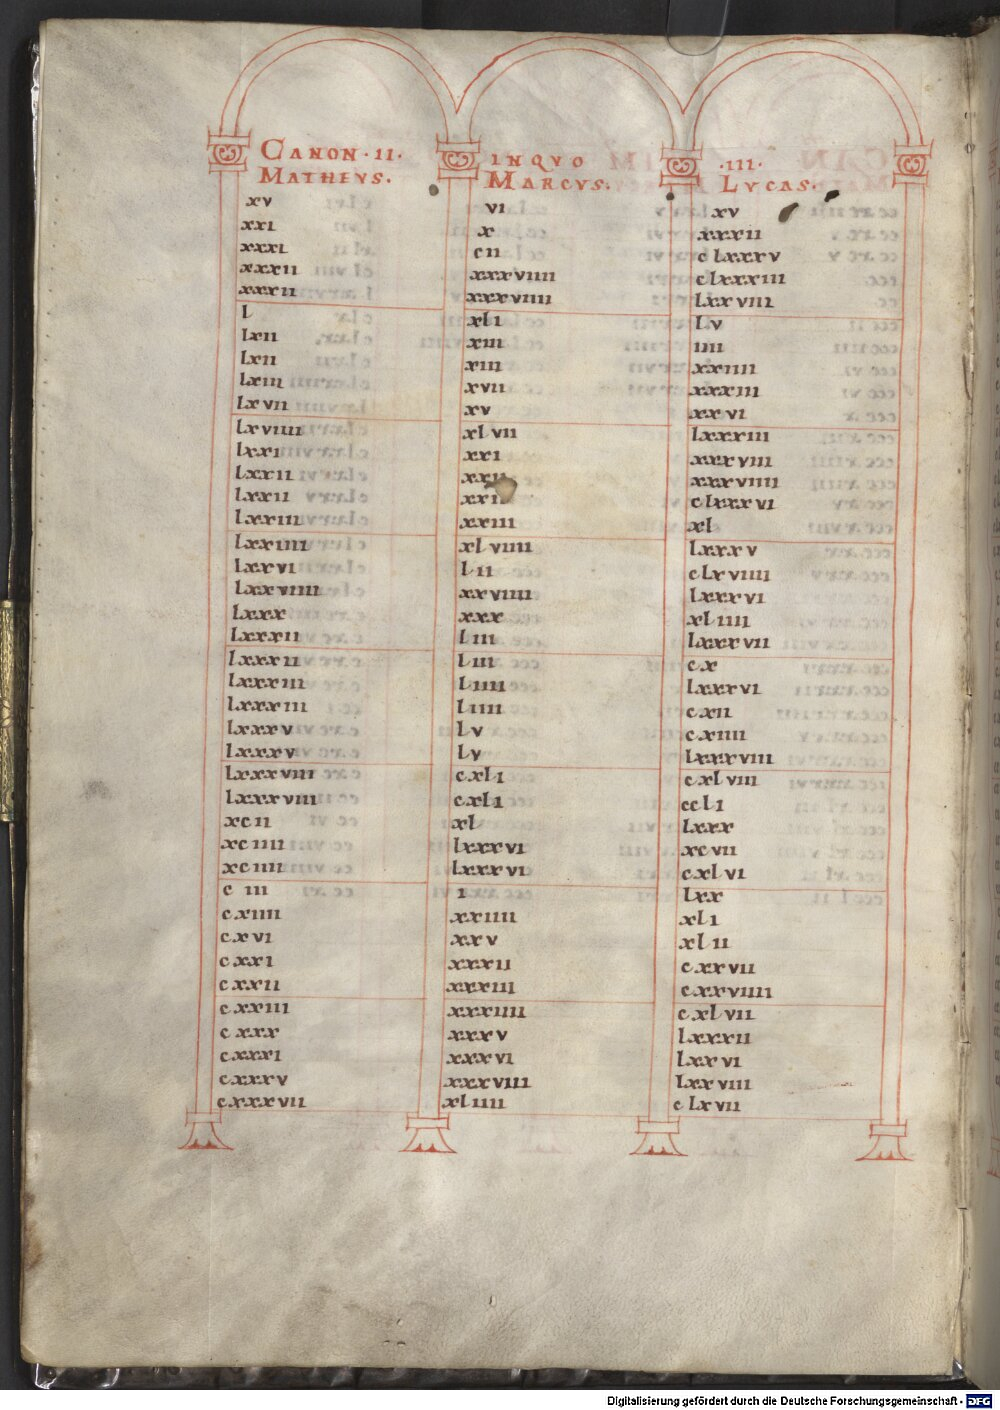 CANON · II · INQVO · III ·
MATHEVS. MARCVS. LVCAS.
xv vi xv
xxi x xxxii
xxxi cii clxxxv
xxxii xxxviiii clxxxiii
xxxii xxxviiii lxxviii
l xli lv
lxii xiii iiii
lxii xiii xxiiii
lxiii xvii xxxiii
lxvii xv xxvi
lxviiii xlvii lxxxiii
lxxi xxi xxxviii
lxxii xxii xxxviiii
lxxii xxii clxxxvi
lxxiii xxiii xl
lxxiiii xlviiii lxxxv
lxxvi lii clxviiii
lxxviiii xxviiii lxxxvi
lxxx xxx xliiii
lxxxii liii lxxxvii
lxxxii liii cx
lxxxiii liiii lxxxvi
lxxxiii liiii cxii
lxxxv lv cxiiii
lxxxv lv lxxxviii
lxxxviii cxli cxlviii
lxxxviii cxli ccli
xcii xl lxxx
xciiii lxxxvi xcvii
xciiii lxxxvi cxlvi
ciii i lxx
cxiiii xxiiii xli
cxvi xxv xlii
cxxi xxxii cxxvii
cxxii xxxiii cxxviiii
cxxiii xxxiiii cxlvii
cxxx xxxv lxxxii
cxxxi xxxvi lxxvi
cxxxv xxxviii lxxviii
cxxxvii xliiii clxvii
Digitalisierung gefördert durch die Deutsche Forschungsgemeinschaft - DFG